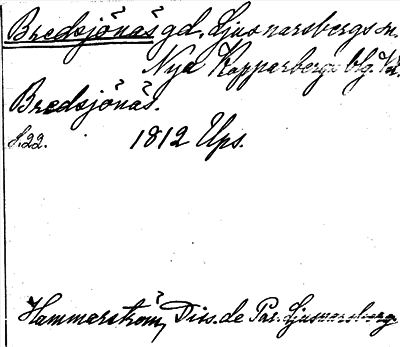 Bredsjönäs gd, Ljusnarsbergs sn.
Nya Kopparbergs blg.
Bredsjönäs.
s. 22. 1812 Ups.
Hammarström, Diss. de Par. Ljusnarsberg